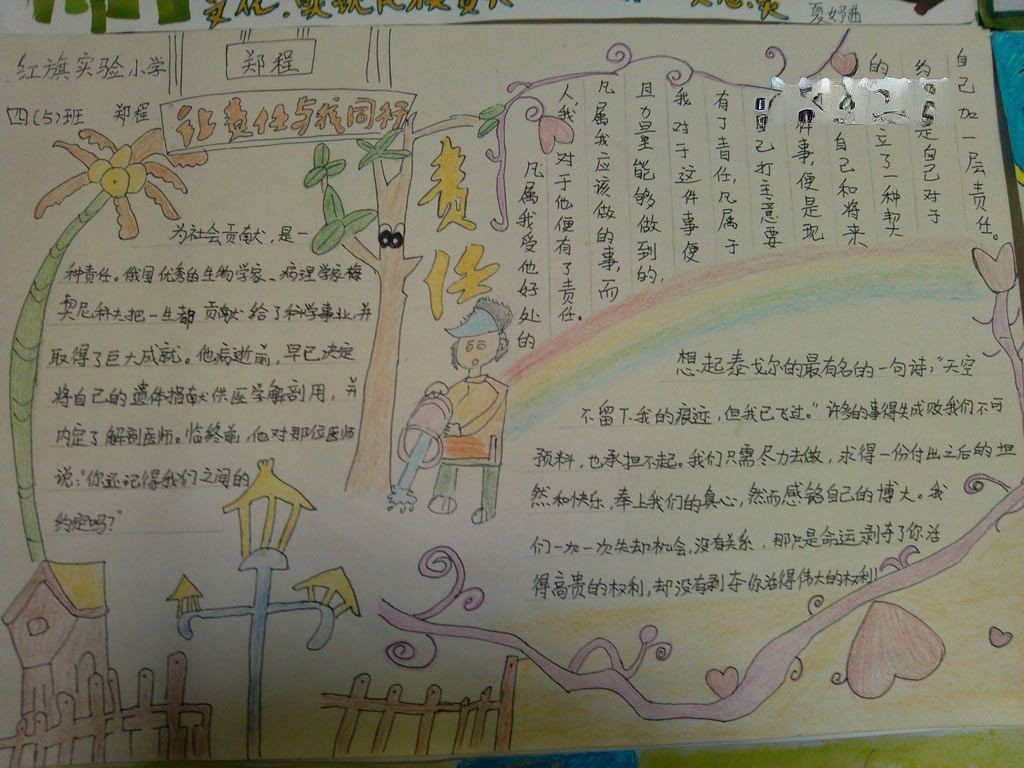 红旗实验小学
郑程
四(5)班 郑程
让责任与我同行
责任
为社会贡献,是一
种责任。俄国优秀的生物学家、病理学家梅
契尼科夫把一生都贡献给了科学事业,并
取得了巨大成就。他病逝前,早已决定
将自己的遗体捐献供医学解剖用,并
内定了解剖医师。临终前,他对那位医师
说:"你还记得我们之间的
约定吗?"
凡属我受他好处的
人我对于他便有了责任。
凡属我应该做的事,而
且力量能够做到的,
我对于这件事便
有了责任,凡属于
自己打主意要
事,便是现
自己和将来
的 立了一种契
约 是自己对于
自己加一层责任。
想起泰戈尔的最有名的一句诗;"天空
不留下我的痕迹,但我已飞过。"许多的事得失成败我们不可
预料,也承担不起。我们只需尽力去做,求得一份付出之后的坦
然和快乐,奉上我们的真心,然而感铭自己的博大。我
们一次一次失却机会,没有关系,那只是命运剥夺了你活
得高贵的权利,却没有剥夺你活得伟大的权利!